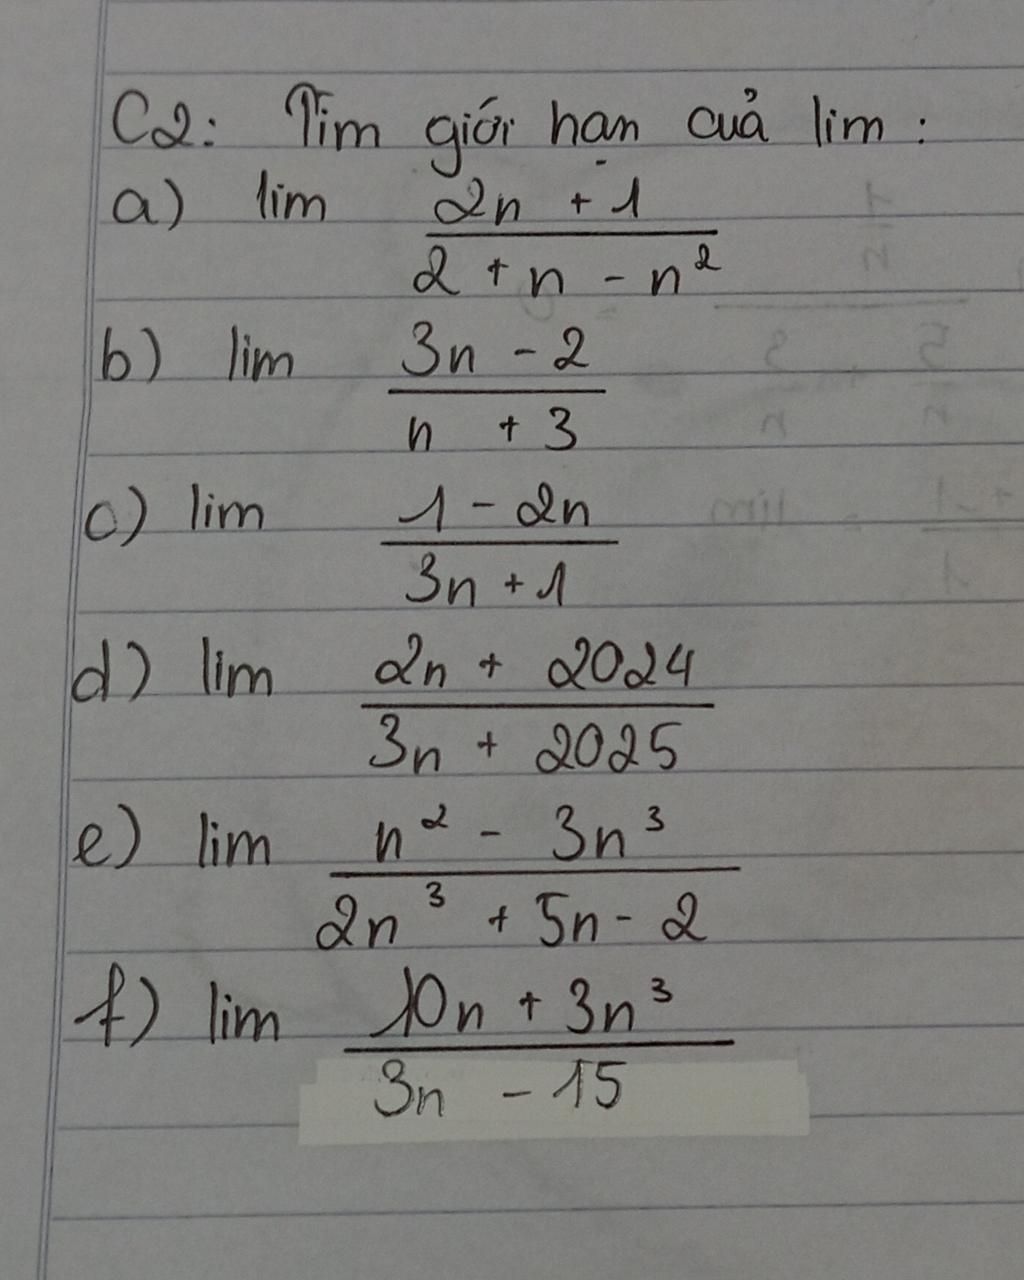 C2: Tìm giới hạn của lim :
a) lim (2n + 1)/(2 + n - n²)
b) lim (3n - 2)/(n + 3)
c) lim (1 - 2n)/(3n + 1)
d) lim (2n + 2024)/(3n + 2025)
e) lim (n² - 3n³)/(2n³ + 5n - 2)
f) lim (10n + 3n³)/(3n - 15)